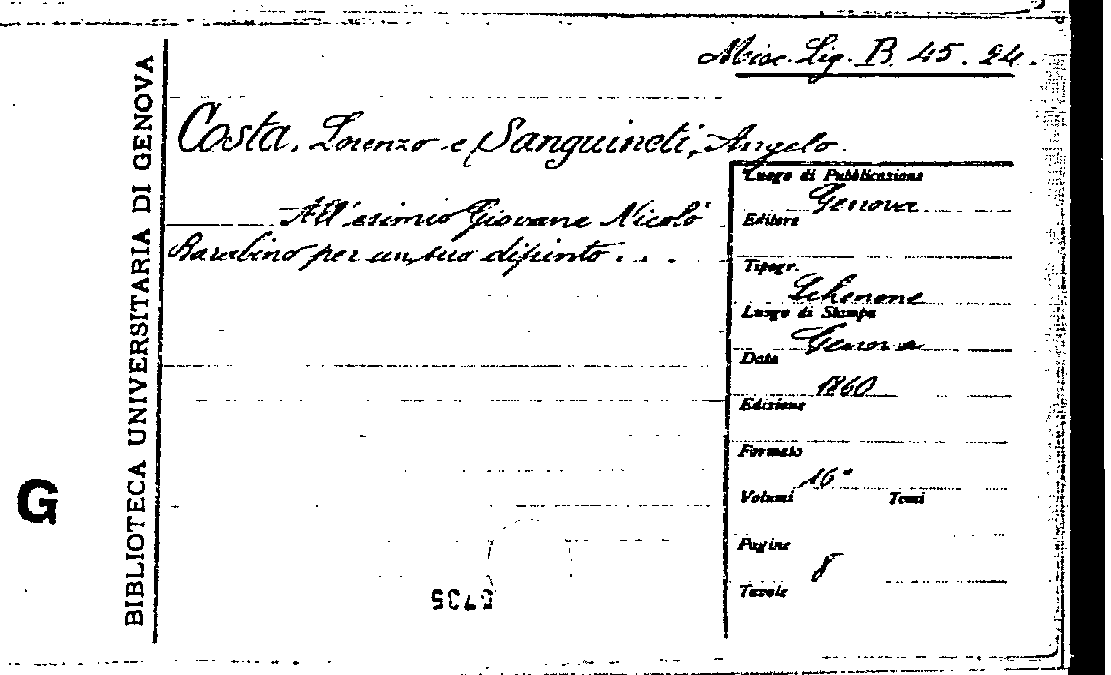 Misc. Lig. B. 45. 24.
Costa, Lorenzo e Sanguineti, Angelo.
All'esimio Giovane Nicolò
Barabino per un suo dipinto . . .
Luogo di Pubblicazione
Genova
Editore
Tipogr.
Schenone
Luogo di Stampa
Genova
Data
1860
Edizione
Formato
16°
Volumi Tomi
Pagine
8
Tavole
BIBLIOTECA UNIVERSITARIA DI GENOVA
G